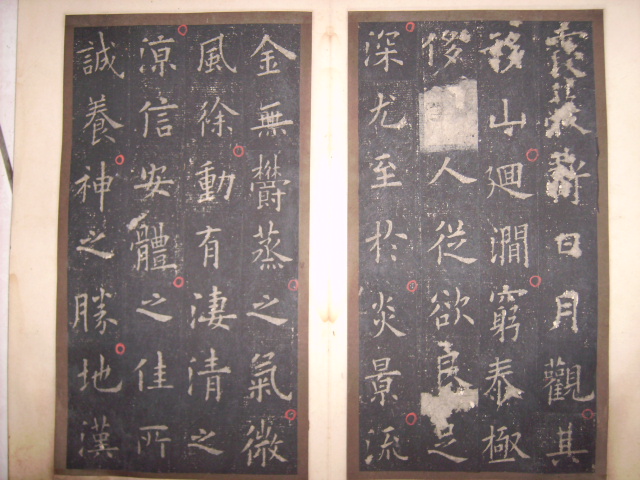 日月觀其
移山迴澗窮泰極
侈人從欲良足
深尤至於炎景流
金無欝蒸之氣微
風徐動有淒清之
涼信安體之佳所
誠養神之勝地漢